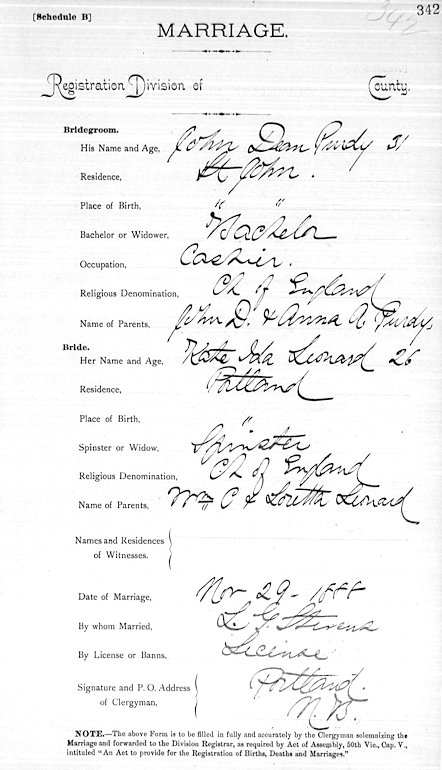 [Schedule B]
342
342
MARRIAGE.
Registration Division of County.
Bridegroom.
His Name and Age, John Dean Purdy 31
Residence, St John.
Place of Birth, " "
Bachelor or Widower, Bachelor
Occupation, Cashier.
Religious Denomination, Ch of England
Name of Parents, John D. & Anna A Purdy
Bride.
Her Name and Age, Kate Ida Leonard 26
Residence, Portland
Place of Birth, "
Spinster or Widow, Spinster
Religious Denomination, Ch of England
Name of Parents, Wm C & Loretta Leonard
Names and Residences
of Witnesses.
Date of Marriage, Nov 29 - 1888
By whom Married, L. G. Stevens
By License or Banns, License
Signature and P. O. Address Portland.
of Clergyman, N. B.
NOTE.—The above Form is to be filled in fully and accurately by the Clergyman solemnizing the
Marriage and forwarded to the Division Registrar, as required by Act of Assembly, 50th Vic., Cap. V.,
intituled "An Act to provide for the Registration of Births, Deaths and Marriages."